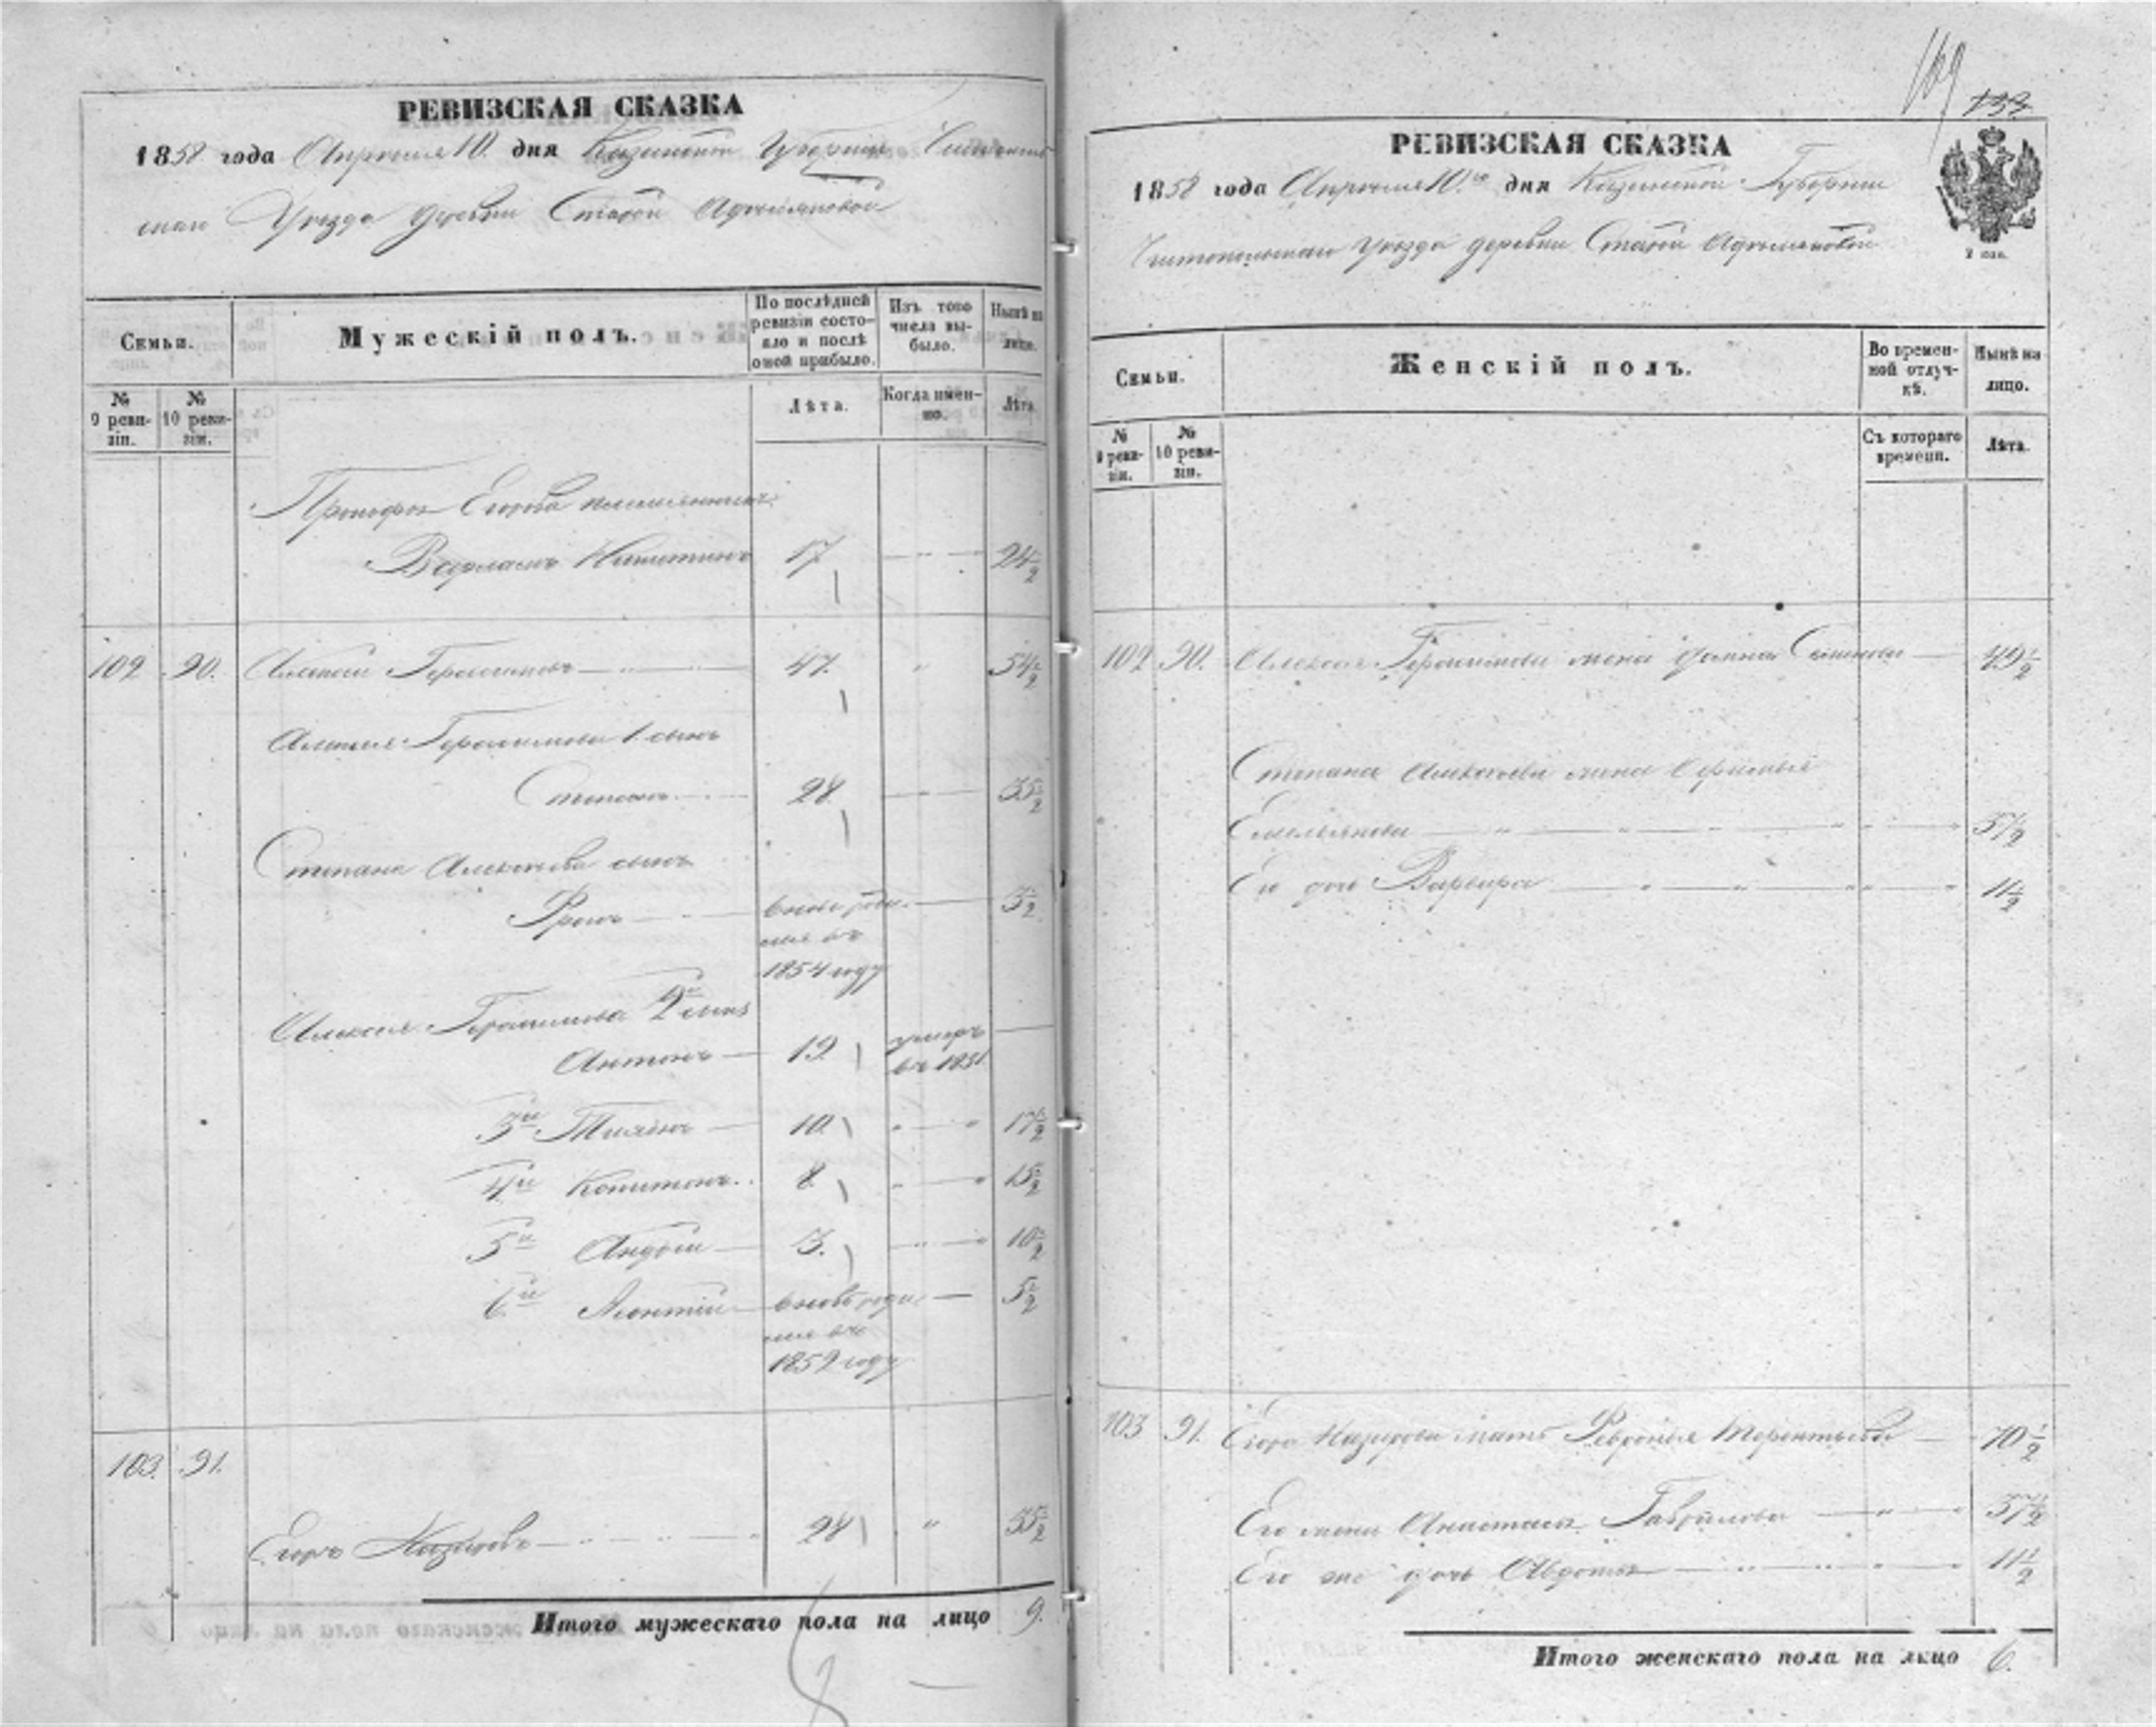 РЕВИЗСКАЯ СКАЗКА
1858 года Апреля 10. дня Казанской Губернии Чистополь-
скаго Уезда деревни Старой Адамшковой
Семьи.
Мужескій полъ.
По послѣдней
ревизіи состо-
яло и послѣ
оной прибыло.
Изъ того
числа вы-
было.
Нынѣ на
лицо.
№
9 реви-
зіи.
№
10 реви-
зіи.
Лѣта.
Когда имен-
но.
Лѣта.
Прокофья Егорова племянникъ
Варламъ Никитинъ 17 24½
102 90. Алексей Герасимовъ 47. 54½
Алексея Герасимова 1. сынъ
Степанъ 28. 35½
Степана Алексеева сынъ
Фролъ вновь роди- 3½
лся въ
1854 году
Алексея Герасимова 2й сынъ
Антонъ 19. умеръ
въ 1851.
3й 10. 17½
4й Капитонъ 8. 15½
5й Андрей 3. 10½
6й Леонтий вновь роди- 5½
лся въ
1852 году
103. 91.
Егоръ Назаровъ 28 35½
Итого мужескаго пола на лицо 9.
169
133
РЕВИЗСКАЯ СКАЗКА
1858 года Апреля 10го дня Казанской Губернии
Чистопольскаго Уезда деревни Старой
Семьи.
Женскій полъ.
Во времен-
ной отлуч-
кѣ.
Нынѣ на
лицо.
№
9 реви-
зіи.
№
10 реви-
зіи.
Съ котораго
времени.
Лѣта.
102 90. Алексея Герасимова жена Домна Семенова 49½
Степана Алексеева жена Офимья
Емельянова 37½
Его дочь Варвара 11½
103 91. Егора Назарова мать Февронья Терентьева 70½
Его жена Анастасья Гаврилова 37½
Его же дочь Авдотья 11½
Итого женскаго пола на лицо 6.